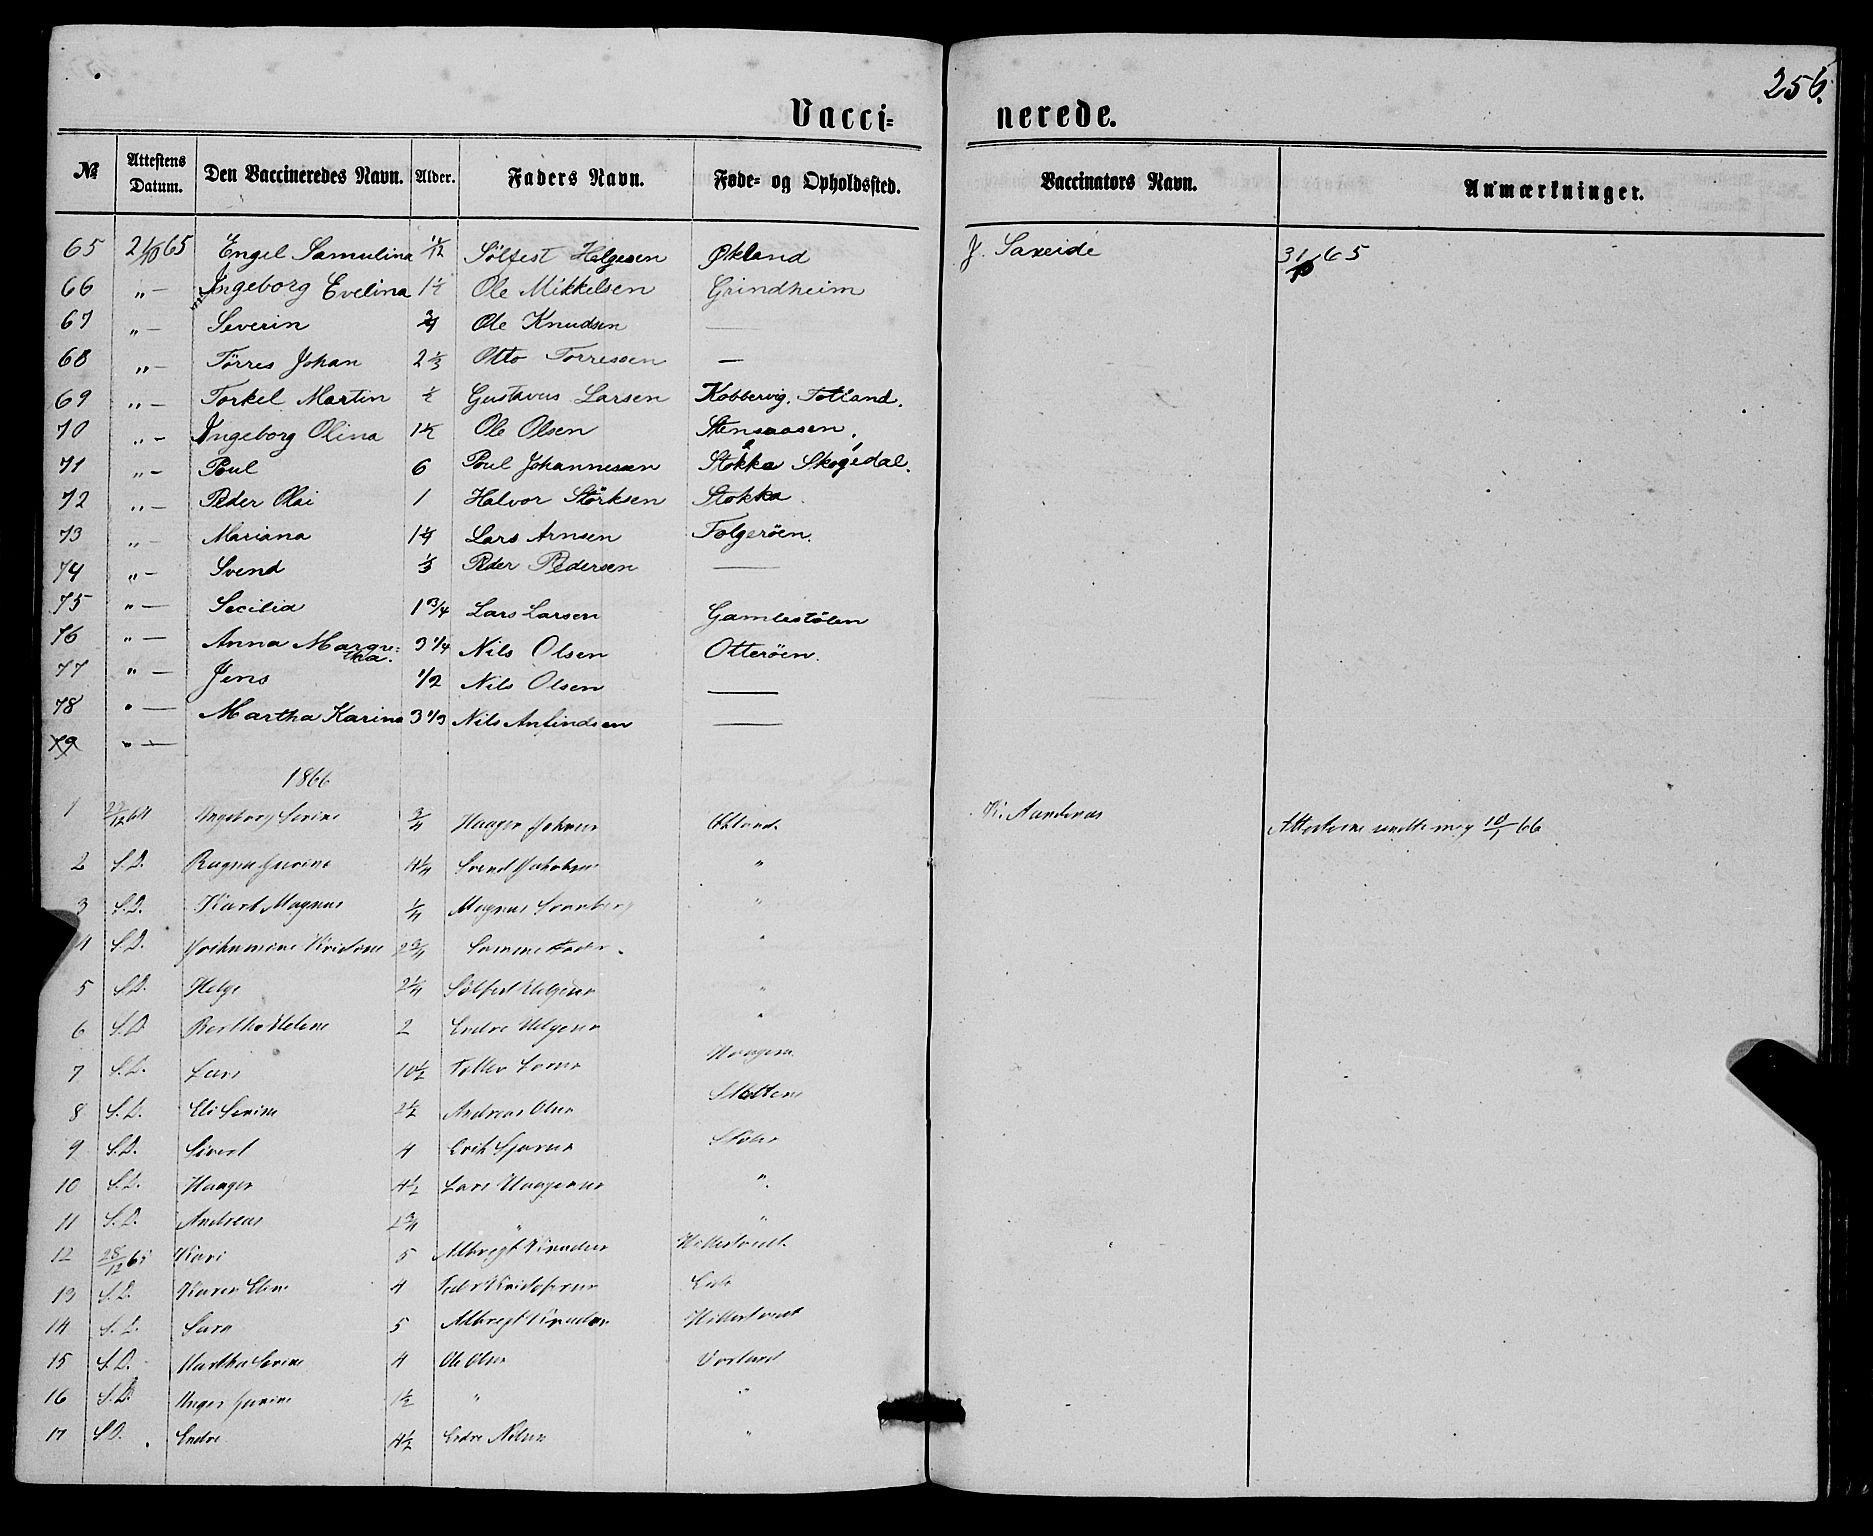 256.
Vacci=nerede.
№ Attestens Datum. Den Vaccineredes Navn. Alder. Faders Navn. Føde- og Opholdssted. Vaccinators Navn. Anmærkninger.
65 21/10 65 Engel Samulina 1/12 Sölfest Helgesen Økland J. Saxeide 31/10 65
66 " — Ingeborg Evelina 1½ Ole Mikkelsen Grindheim
67 " — Severin ¾ Ole Knudsen —
68 " — Törres Johan 2⅓ Otto Torresen —
69 " — Torkel Martin ½ Gustavus Larsen Kobbervig. Totland.
70 " — Ingeborg Olina 1½ Ole Olsen Stensaasen.
71 " — Poul 6 Poul Johannesen Stokka Skogedal.
72 " — Peder Olai 1 Halvor Störksen Stokka.
73 " — Mariana 1¼ Lars Arnsen Folgeröen.
74 " — Svend ⅓ Peder Pedersen —
75 " — Secilia 1 3/4 Lars Larsen Gamlestölen
76 " — Anna Margre=tha. 3 1/4 Nils Olsen Otteröen.
77 " — Jens 1/2 Nils Olsen —
78 " — Martha Karina 3 1/3 Nils Anfindsen —
79 " —
1866
1 Ingeborg Serine ¾ Haagen Økland. Attesterne sendte mig 10/1 66
2 S.D. Ragna Serine 4¼ Svend Jakobsen "
3 S.D. Karl Magnus ¼ Magnus "
4 S.D. Jochumine 2¾ Samme Fader. "
5 S.D. Helge 2¼ Sölfest Helgesen "
6 S.D. Berthe Helene 2 Endre Helgesen "
7 S.D. Lars 10½ Tollev Larsen
8 S.D. Eli Serine 2½ Andreas Olsen
9 S.D. Sivert 4 Erik
10 S.D. Haagen 4½ Lars Haagensen "
11 S.D. Andreas 2¾ " "
12 28/12 65 Kari 5 Albregt Knudsen Hillestvedt.
13 S.D. Karen Eline 4 Eide
14 S.D. Sara 5 Albregt Knudsen Hillestvedt
15 S.D. Martha Serine 4 Ole Olsen Vorland
16 S.D. Inger Serine 1½ " "
17 S.D. Endre 4½ Endre Nilsen "